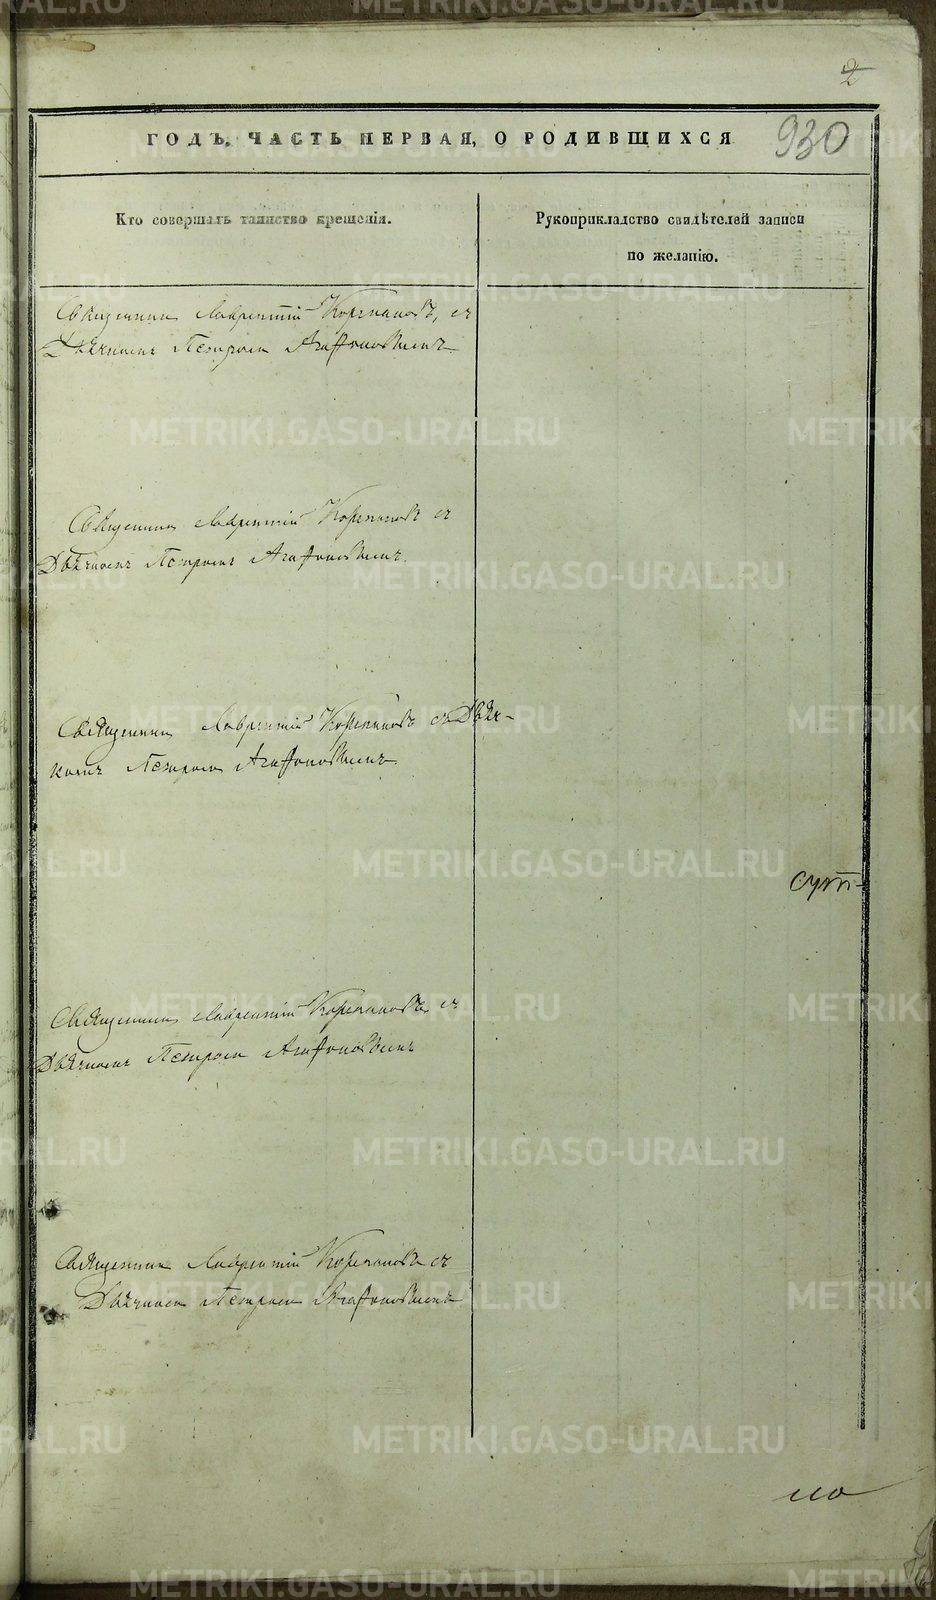 2
ГОДЪ, ЧАСТЬ ПЕРВАЯ, О РОДИВШИХСЯ
930
Кто совершалъ таинство крещенія.
Рукоприкладство свидѣтелей записи
по желанію.
Священникъ Лаврентій Корепановъ, съ
Дьячкомъ Петромъ Агафоновымъ
Священникъ Лаврентій Корепановъ съ
Дьячкомъ Петромъ Агафоновымъ.
Священникъ Лаврентій Корепановъ съ Дьяч-
комъ Петромъ Агафоновымъ
Священникъ Лаврентій Корепановъ съ
Дьячкомъ Петромъ Агафоновымъ
Священникъ Лаврентій Корепановъ съ
Дьячкомъ Петромъ Агафоновымъ
METRIKI.GASO-URAL.RU